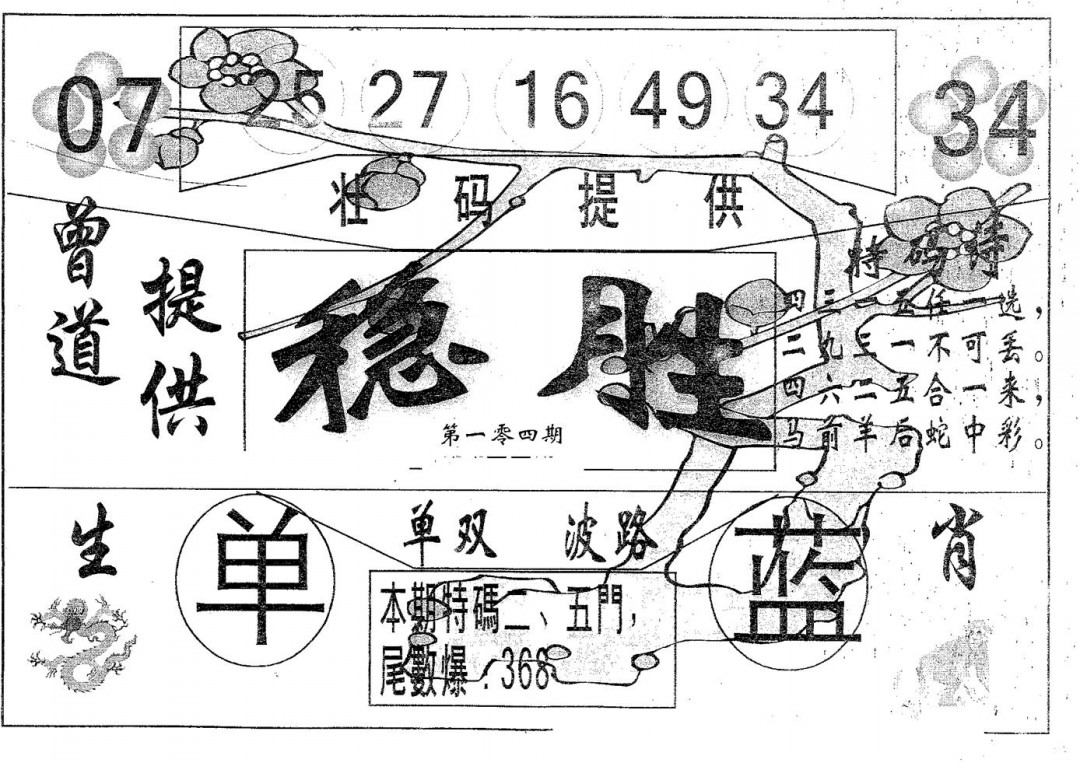 07 25 27 16 49 34 34
壮码提供
曾道
提供
稳胜
第一零四期
特码诗
四三一五任一选，
二九三一不可丢。
四六二五合一来，
马前羊后蛇中彩。
生肖
单双 波路
单
蓝
本期特碼二、五門，
尾數爆：368